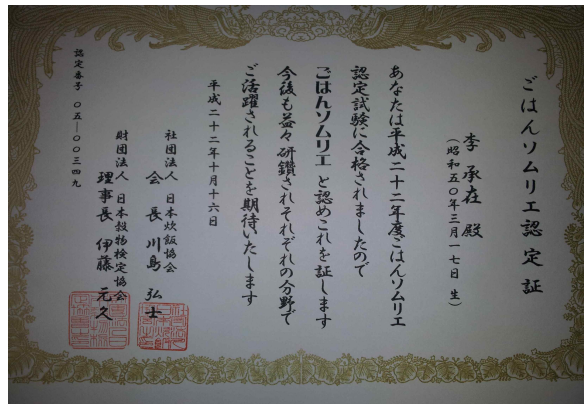 ごはんソムリエ認定証
李承在 殿
(昭和五〇年三月一七日 生)
あなたは平成二十二年度ごはんソムリエ
認定試験に合格されましたので
ごはんソムリエと認めこれを証します
今後も益々研鑽されそれぞれの分野で
ご活躍されることを期待いたします
平成二十二年十月十六日
社団法人 日本炊飯協会
会長 川島 弘士
財団法人 日本穀物検定協会
理事長 伊藤 元久
認定番号 〇五―〇〇三四九